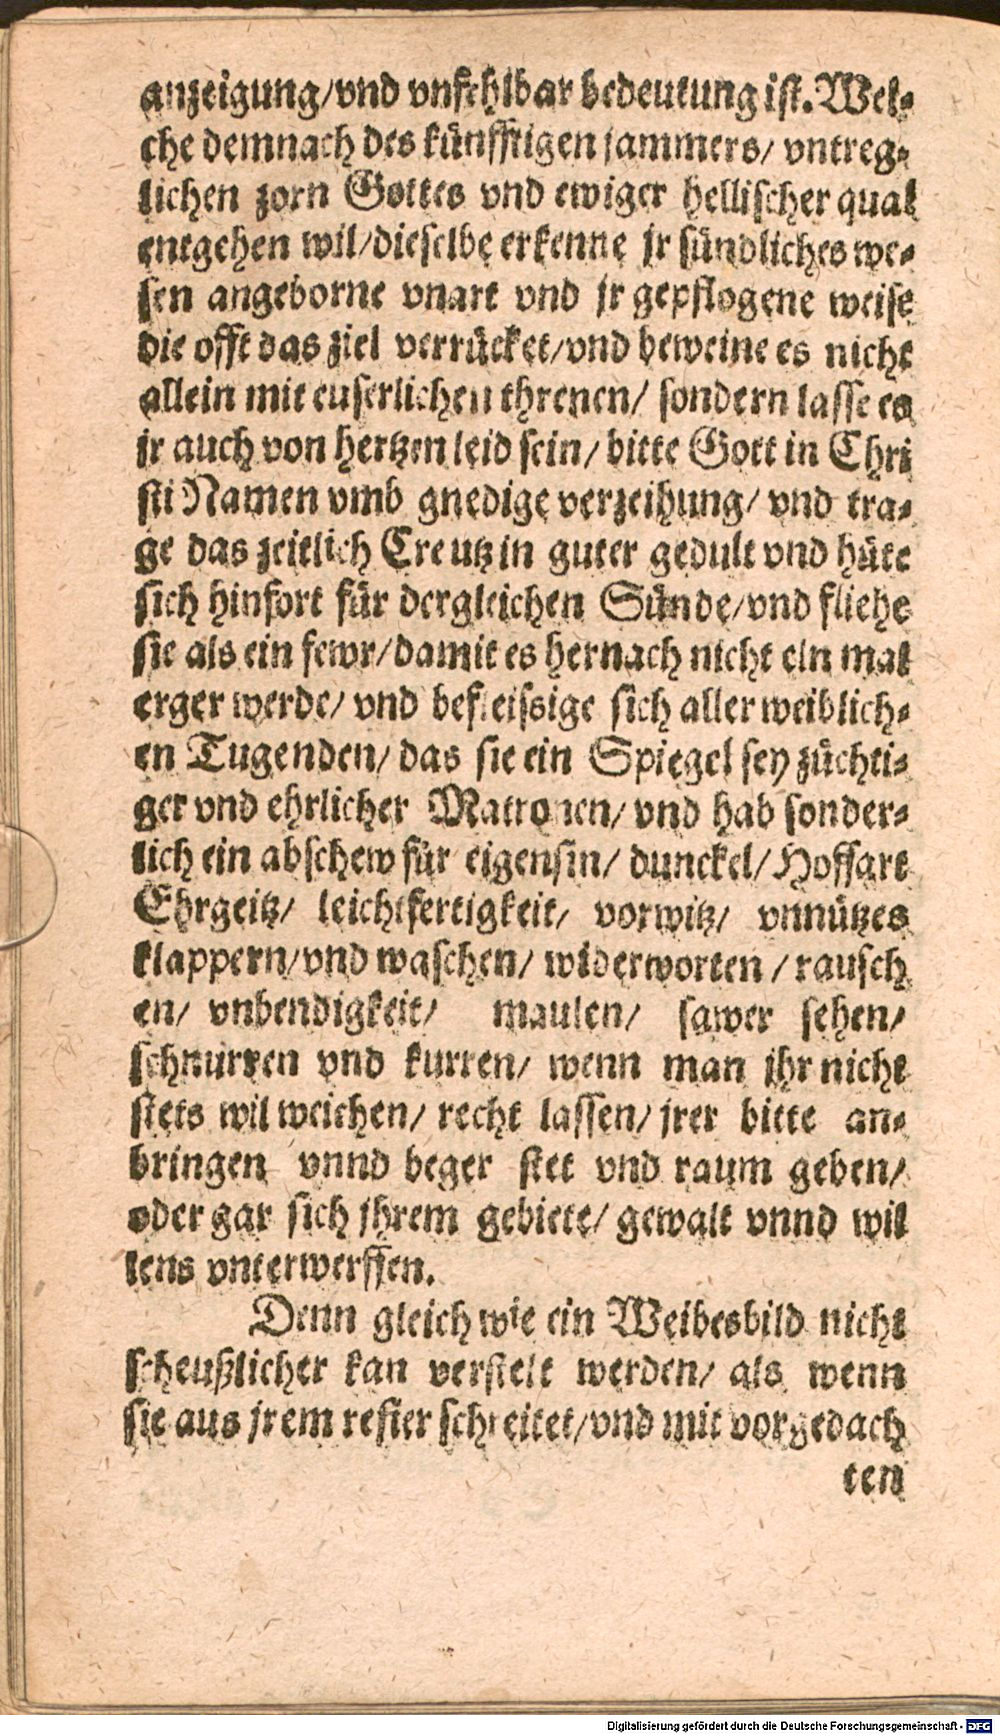 anzeigung/vnd vnfehlbar bedeutung ist. Wel-
che demnach des künfftigen jammers/ vntreg-
lichen zorn Gottes vnd ewiger hellischer qual
entgehen wil/dieselbe erkenne jr sündliches we-
sen angeborne vnart vnd jr gepflogene weise
die offt das ziel verrücket/vnd beweine es nicht
allein mit euserlichen threnen/ sondern lasse es
jr auch von hertzen leid sein/ bitte Gott in Chri
sti Namen vmb gnedige verzeihung/ vnd tra-
ge das zeitlich Creutz in guter gedult vnd hüte
sich hinfort für dergleichen Sünde/vnd fliehe
sie als ein fewr/damit es hernach nicht ein mal
erger werde/ vnd befleissige sich aller weiblich-
en Tugenden/ das sie ein Spiegel sey züchti-
ger vnd ehrlicher Matronen/ vnd hab sonder-
lich ein abschew für eigensin/ dunckel/ Hoffart
Ehrgeitz/ leichtfertigkeit/ vorwitz/ vnnützes
klappern/vnd waschen/ widerworten / rausch
en/ vnbendigkeit/ maulen/ sawer sehen/
schnurren vnd kurren/ wenn man jhr nicht
stets wil weichen/ recht lassen/ jrer bitte an-
bringen vnnd beger stet vnd raum geben/
oder gar sich jhrem gebiete/ gewalt vnnd wil
lens vnterwerffen.
Denn gleich wie ein Weibesbild nicht
scheußlicher kan verstelt werden/ als wenn
sie aus jrem refier schreitet/vnd mit vorgedach
ten
Digitalisierung gefördert durch die Deutsche Forschungsgemeinschaft - DFG